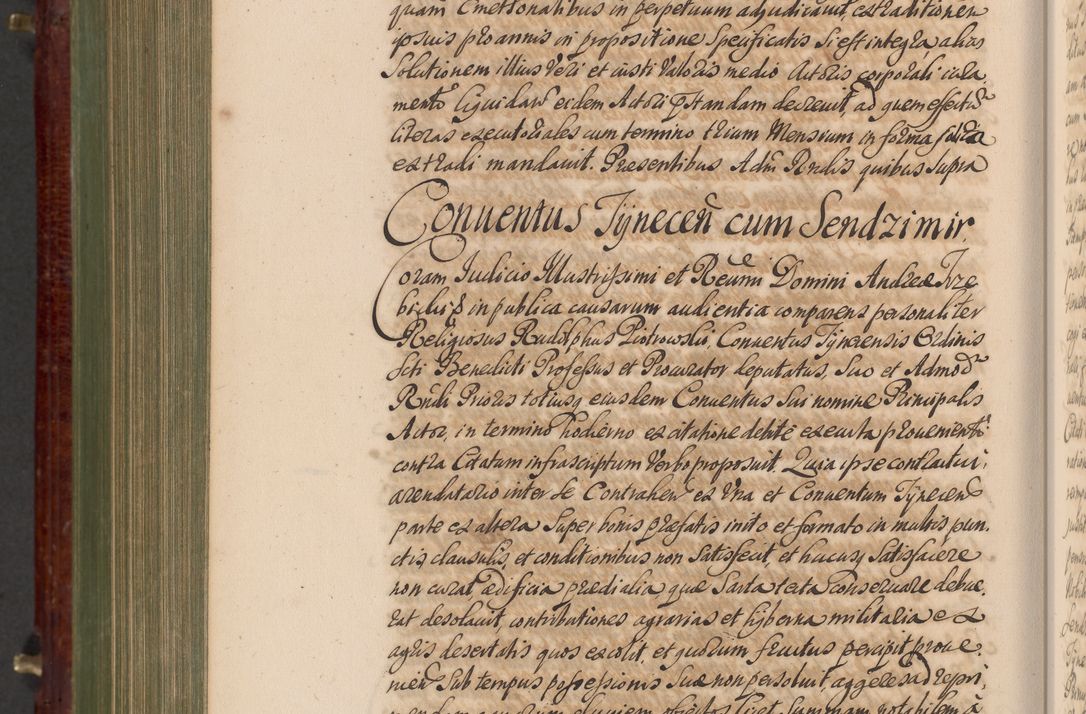 quam Emetsonalibus in perpetuum adjudicavit, extraditionem
ipsius pro annis in propositione Specificatis si est integra, alias
Solutionem illius Veri et iusti Valoris medio Actoris corporali iura
mento liquidaň eidem Actori ꝓstandam decrevit, ad quem effectũ
literas executoriales cum termino trium Mensium in forma solita
extradi mandavit. Presentibus Adm̃ Rndis quibus supra
Conuentus Tÿneceň cum Sendzimir
Coram Iudicio Illustrissimi et Reu͂mi Domini Andreæ Trze
bicki ꝓ in publica causarum audientia comparens personaliter
Religiosus Rudolphus Piotrowski, Conuentus Tÿnecensis Ordinis
Scti Benedicti Professus et Procurator deputatus, Suo et Admod̃
Rndi Prioris totiusq eiusdem Conuentus Sui nomine Principalis
Actor, in termino hodierno ex citatione debite executa prouenienti
contra Citatum infrascriptum Verbo proposuit. Quia ipse contractui
arendatario inter se Contraheň ex Vna et Conuentum Tÿneceň
parte ex altera Super bonis præfatis inito et formato in multis pun
ctis clausulis, et conditionibus non Satisfecit, et hucusq Satisfacere
non curat, ædificia prædialia quæ Sarta tecta Conseruare debue
rat desolauit, contributiones agrarias et hÿberna militaria ex
agris desertatis quos excolit, et quorum fructus percipit proue
nieň Sub tempus possessionis Suæ non persoluit, aggeres ad repri